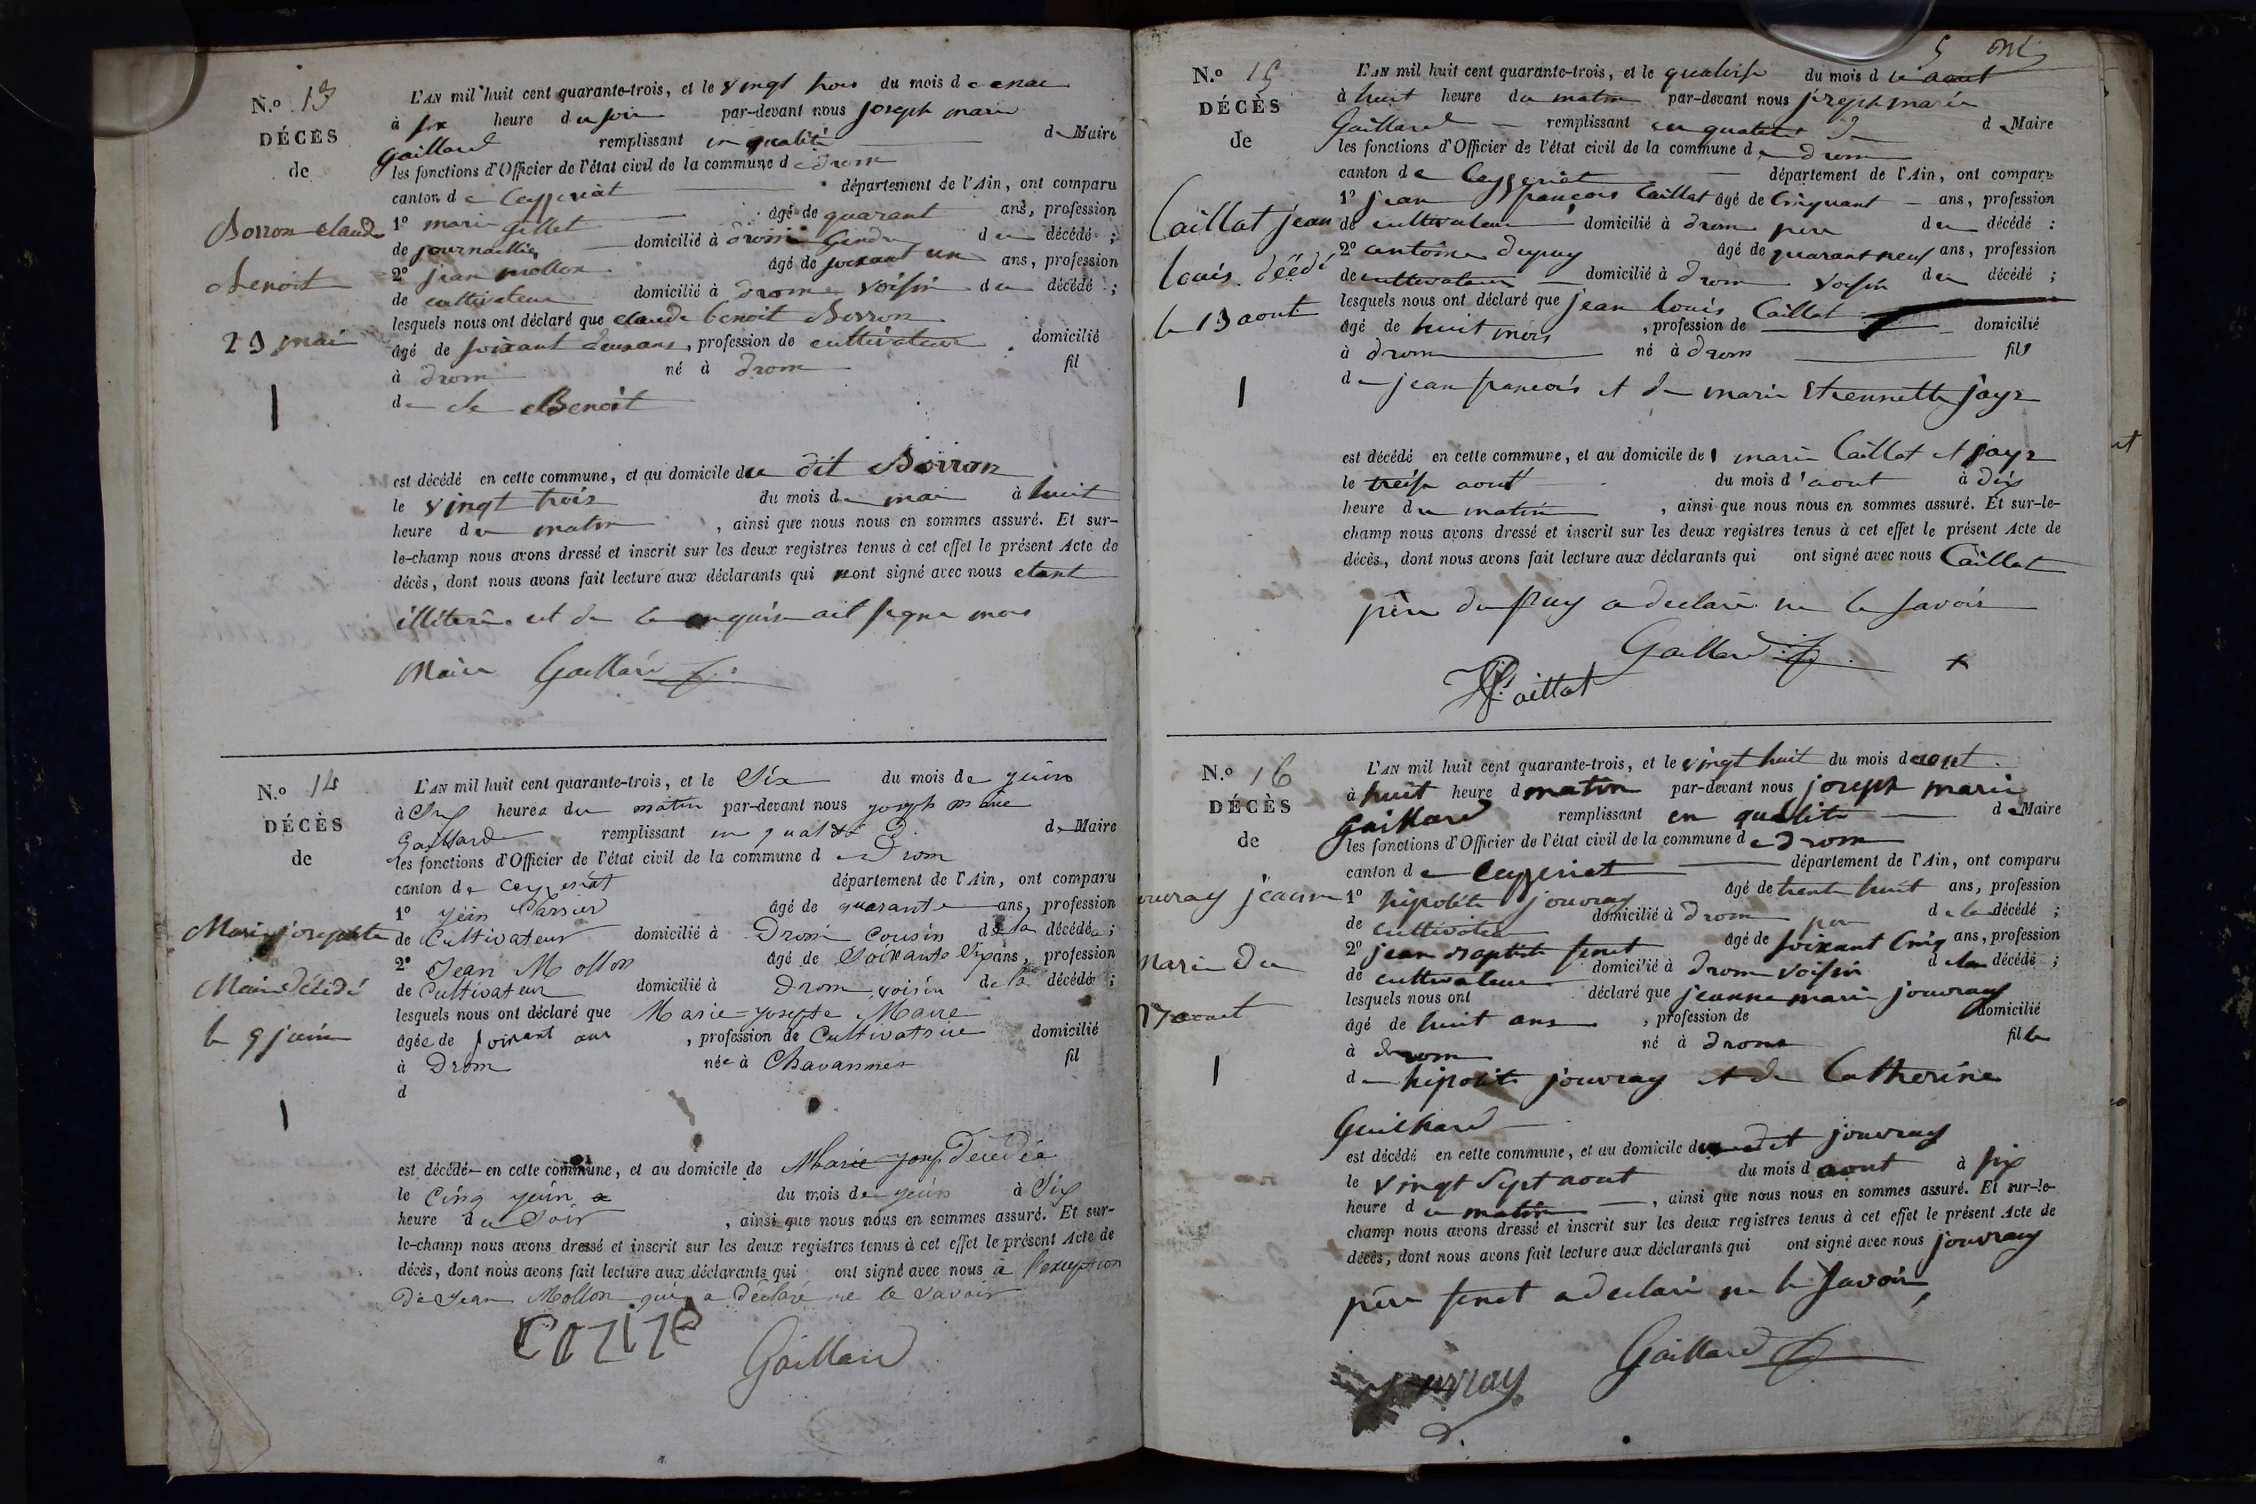 N.º 13
DÉCÈS
de
Borron claude
benoit
23 mai
L'AN mil huit cent quarante-trois, et le vingt trois du mois de mai
à six heure du soir par-devant nous joseph marie
Gaillard remplissant en qualité de Maire
les fonctions d'Officier de l'état civil de la commune de Drom
canton de Ceyzeriat département de l'Ain, ont comparu
1º marie gillet âgé de quarant ans, profession
de journallier domicilié à drom Gendre du décédé ;
2º jean mollon âgé de soixant un ans, profession
de cultivateur domicilié à drom voisin du décédé ;
lesquels nous ont déclaré que claude benoit Borron
âgé de soixant deux ans, profession de cultivateur domicilié
à drom né à drom fil
de Benoit
est décédé en cette commune, et au domicile du dit Borron
le vingt trois du mois de mai à huit
heure du matin, ainsi que nous nous en sommes assuré. Et sur-
le-champ nous avons dressé et inscrit sur les deux registres tenus à cet effet le présent Acte de
décès, dont nous avons fait lecture aux déclarants qui n'ont signé avec nous etant
illiterés et de ce enquis ait signe nous
Maire Gaillard
N.º 14
DÉCÈS
de
Marie josephte
Maire décédé
le 9 juin
L'AN mil huit cent quarante-trois, et le Six du mois de juin
à Six heures du matin par-devant nous joseph marie
Gaillard remplissant en qualité de Maire
les fonctions d'Officier de l'état civil de la commune de Drom
canton de Ceyzeriat département de l'Ain, ont comparu
1º jean âgé de quarante ans, profession
de Cultivateur domicilié à Drom Cousin de la décédée ;
2º Jean Mollon âgé de Soixante Six ans, profession
de Cultivateur domicilié à Drom voisin de la décédée ;
lesquels nous ont déclaré que Marie josephte Maire
âgée de soixant ans, profession de Cultivatrice domicilié
à Drom née à Chavannes fil
d
est décédée en cette commune, et au domicile de Marie josep Décédée
le Cinq juin du mois de juin à Six
heure du Soir, ainsi que nous nous en sommes assuré. Et sur-
le-champ nous avons dressé et inscrit sur les deux registres tenus à cet effet le présent Acte de
décès, dont nous avons fait lecture aux déclarants qui ont signé avec nous à l'exception
de Jean Mollon qui a déclaré ne le savoir
Gaillard
5
N.º 15
DÉCÈS
de
Caillat jean
louis décédé
le 13 aout
L'AN mil huit cent quarante-trois, et le quatorse du mois de aout
à huit heure du matin par-devant nous joseph marie
Gaillard remplissant en qualité de Maire
les fonctions d'Officier de l'état civil de la commune de drom
canton de Ceyzeriat département de l'Ain, ont comparu
1º jean françois Caillat âgé de Cinquant ans, profession
de cultivateur domicilié à drom pere du décédé ;
2º antoine dupuy âgé de quarant neuf ans, profession
de cultivateur domicilié à drom voisin du décédé ;
lesquels nous ont déclaré que jean louis Caillat
âgé de huit mois, profession de domicilié
à drom né à drom fils
de jean francois et de marie Etiennette jayr
est décédé en cette commune, et au domicile de marie Caillat et jayr
le treise aout du mois d'aout à dix
heure du matin, ainsi que nous nous en sommes assuré. Et sur-le-
champ nous avons dressé et inscrit sur les deux registres tenus à cet effet le présent Acte de
décès, dont nous avons fait lecture aux déclarants qui ont signé avec nous Caillat
père dupuy a declaré ne le savoir
Gaillard
Caillat
N.º 16
DÉCÈS
de
jouvray jeanne
Marie du
27 aout
L'AN mil huit cent quarante-trois, et le vingt huit du mois de aout
à huit heure d matin par-devant nous joseph marie
Gaillard remplissant en qualité de Maire
les fonctions d'Officier de l'état civil de la commune de drom
canton de Ceyzeriat département de l'Ain, ont comparu
1º hipolite jouvray âgé de trente huit ans, profession
de cultivateur domicilié à drom per de la décédé ;
2º jean Baptiste fenet âgé de soixant Cinq ans, profession
de cultivateur domicilié à drom voisin de la décédé ;
lesquels nous ont déclaré que jeanne marie jouvray
âgé de huit ans, profession de domicilié
à drom né à drom fille
de hipolite jouvray et de Catherine
Guilhard
est décédé en cette commune, et au domicile du dit jouvray
le vingt Sept aout du mois d aout à six
heure du matin, ainsi que nous nous en sommes assuré. Et sur-le-
champ nous avons dressé et inscrit sur les deux registres tenus à cet effet le présent Acte de
décès, dont nous avons fait lecture aux déclarants qui ont signé avec nous jouvray
père fenet a declaré ne le savoir,
Gaillard
jouvray